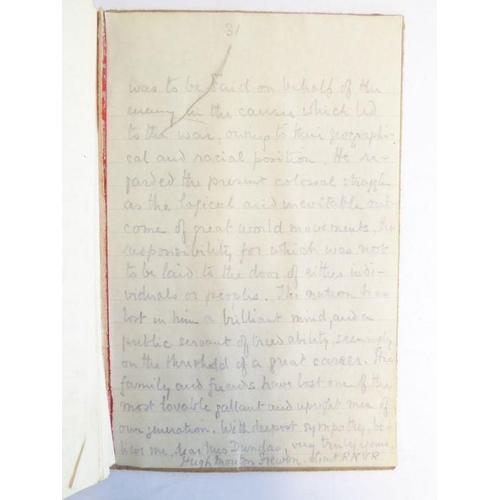 31
was to be said on behalf of the
enemy in the causes which led
to the war, owing to their geographi-
cal and racial position. He re-
garded the present colossal struggle
as the logical and inevitable out
come of great world movements, the
responsibility for which was not
to be laid to the door of either indi-
viduals or peoples. The nation has
lost in him a brilliant mind, and a
public servant of tried ability, seemingly
on the threshold of a great career. His
family and friends have lost one of the
most lovable gallant and upright men of
our generation. With deepest sympathy, be-
lieve me, dear Mrs Dundas, very truly yours,
Hugh Moreton Frewen. Lieut R.N.V.R.